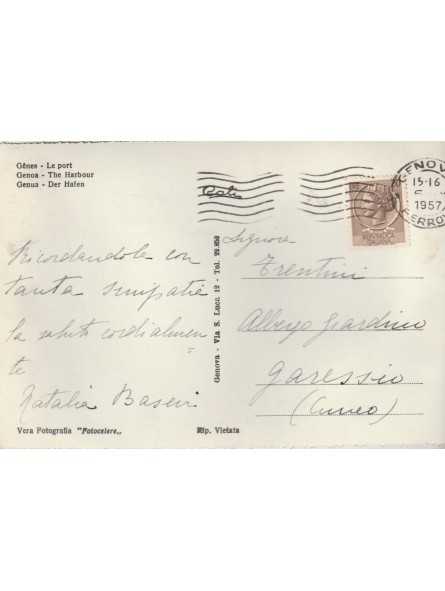 Gênes - Le port
Genoa - The Harbour
Genua - Der Hafen
GENOV
15-16
1957
FERROV
Ricordandole con
tanta simpatia
la saluto cordialmen
te
Natalia Basevi
Genova - Via S. Luca 12 - Tel.
Signora
Trentini
Albergo Giardino
Garessio
(Cuneo)
Vera Fotografia "Fotocelere„
Rip. Vietata